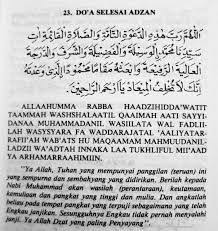 23. DO'A SELESAI ADZAN
اَللّٰهُمَّ رَبَّ هٰذِهِ الدَّعْوَةِ التَّامَّةِ وَالصَّلَاةِ
الْقَائِمَةِ آتِ سَيِّدَنَا مُحَمَّدَانِ الْوَسِيْلَةَ وَالْفَضِيْلَةَ وَالشَّرَفَ وَالدَّرَجَةَ
الْعَالِيَةَ الرَّفِيْعَةَ وَابْعَثْهُ مَقَامًا مَحْمُوْدَانِ الَّذِيْ وَعَدْتَهُ
اِنَّكَ لَا تُخْلِفُ الْمِيْعَادَ يَآ اَرْحَمَ الرَّاحِمِيْنَ
ALLAAHUMMA RABBA HAADZIHIDDA'WATIT
TAAMMAH WASHSHALAATIL QAAIMAH AATI SAYYI-
DANAA MUHAMMADANIL WASIILATA WAL FADLII-
LAH WASYSYARA FA WADDARAJATAL 'AALIYATAR-
RAFII'AH WAB'ATS HU MAQAAMAM MAHMUUDANIL-
LADZII WA'ADTAH INNAKA LAA TUKHLIFUL MII'AAD
YA ARHAMARRAAHIMIIN.
"Ya Allah, Tuhan yang mempunyai panggilan (seruan) ini
yang sempurna dan sembahyang yang didirikan. Berilah kepada
Nabi Muhammad akan wasilah (perantaraan), keutamaan,
kemuliaan dan pangkat yang tinggi dan mulia. Dan angkatlah
beliau pada tempat/pangkat yang terpuji sebagaimana yang telah
Engkau janjikan. Sesungguhnya Engkau tidak pernah menyalahi
janji. Ya Allah Dzat yang paling Penyayang".